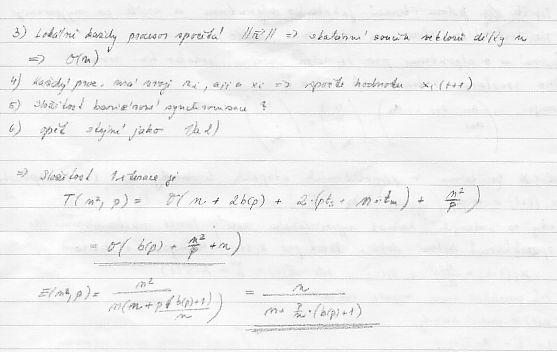 3) Lokálně každý procesor spočítá ||r|| => skalární součin vektorů délky n
=> O(n)
4) každý proc. má svoji r_i, a_ii a x_i => spočte hodnotu x_i(t+1)
5) složitost bariérové synchronizace ?
6) opět stejné jako
=> složitost 1 iterace je
T(n², p) = O(n + 2b(p) + 2·(pt_s + n·t_m) + n²/p)
= O(b(p) + n²/p + n)
E(n², p) = n² / n(n + p(b(p)+1)/n) = n / n + p/n·(b(p)+1)